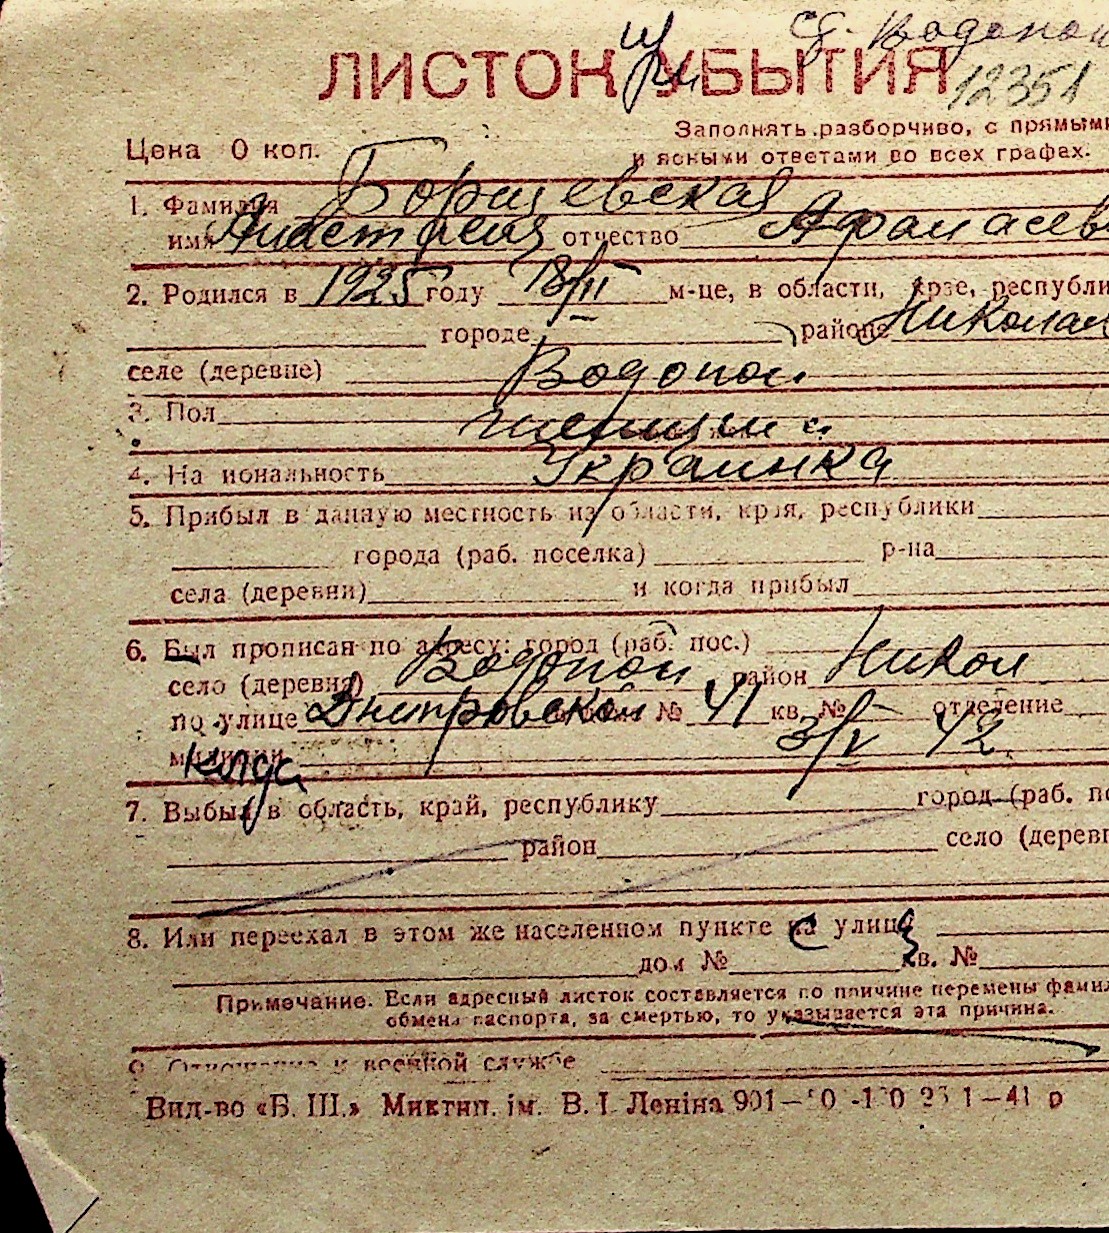 ст. Водопой
ЛИСТОК УБЫТИЯ
12351
Заполнять разборчиво, с прямыми
Цена 0 коп.
и ясными ответами во всех графах.
1. Фамилия Борщевская
имя Анастасия отчество Афанасьев
2. Родился в 1925 году 18/II м-це, в области, крае, республи
городе районе Николаев
селе (деревне) Водопой
3. Пол женщина
4. Национальность Украинка
5. Прибыл в данную местность из области, края, республики
города (раб. поселка) р-на
села (деревни) и когда прибыл
6. Был прописан по адресу: город (раб. пос.)
село (деревня) Водопой район Никол
по улице Днепровской дом № 41 кв. № отделение
милиции 3/V 42
когда
7. Выбыл в область, край, республику город (раб. по
район село (дерев
8. Или переехал в этом же населенном пункте с улица
дом № кв. №
Примечание. Если адресный листок составляется по причине перемены фамил
обмена паспорта, за смертью, то указывается эта причина.
9. Отношение к военной службе
Вид-во «Б. Ш.» Миктип. ім. В. І. Леніна 901